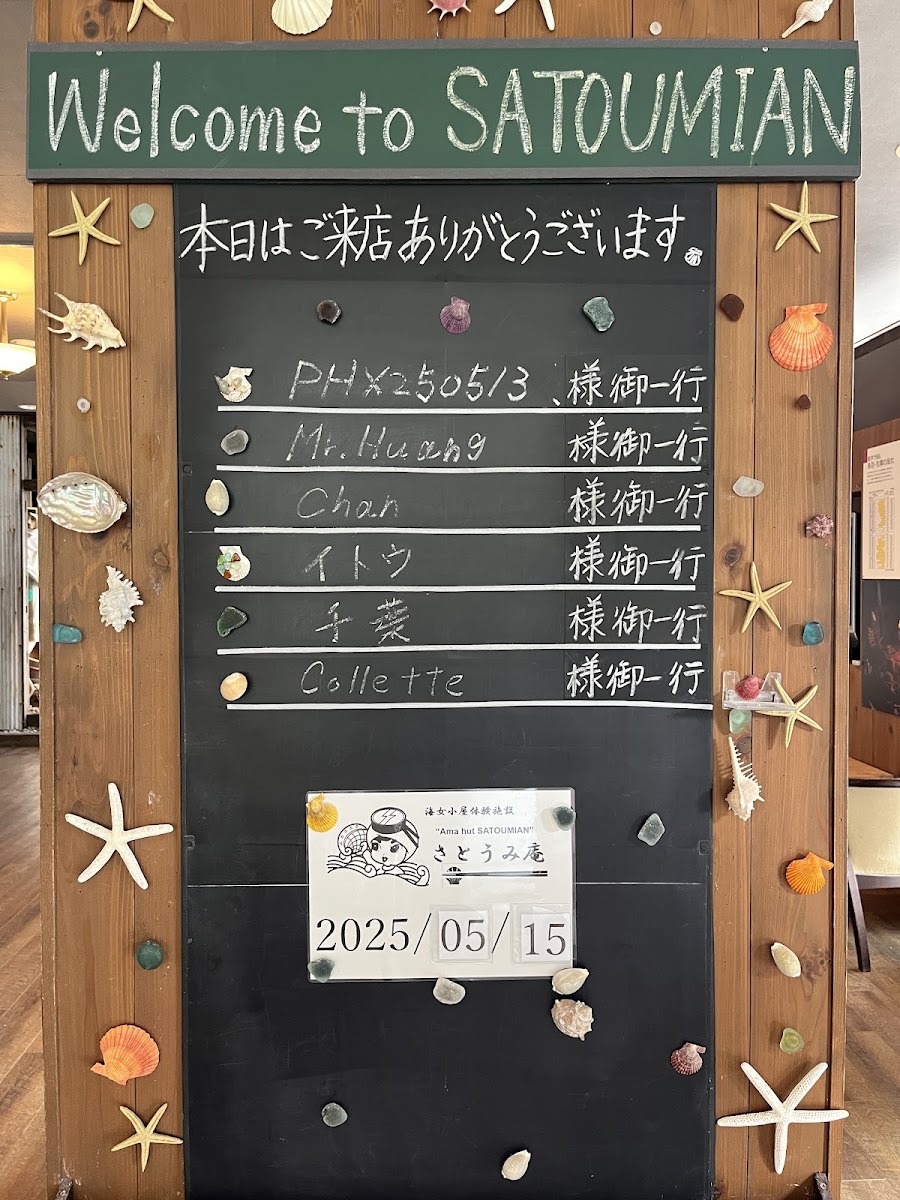 Welcome to SATOUMIAN
本日はご来店ありがとうございます。
PHX250513 様御一行
Mr. Huang 様御一行
Chan 様御一行
イトウ 様御一行
千葉 様御一行
Collette 様御一行
海女小屋体験施設
"Ama hut SATOUMIAN"
さとうみ庵
2025/05/15